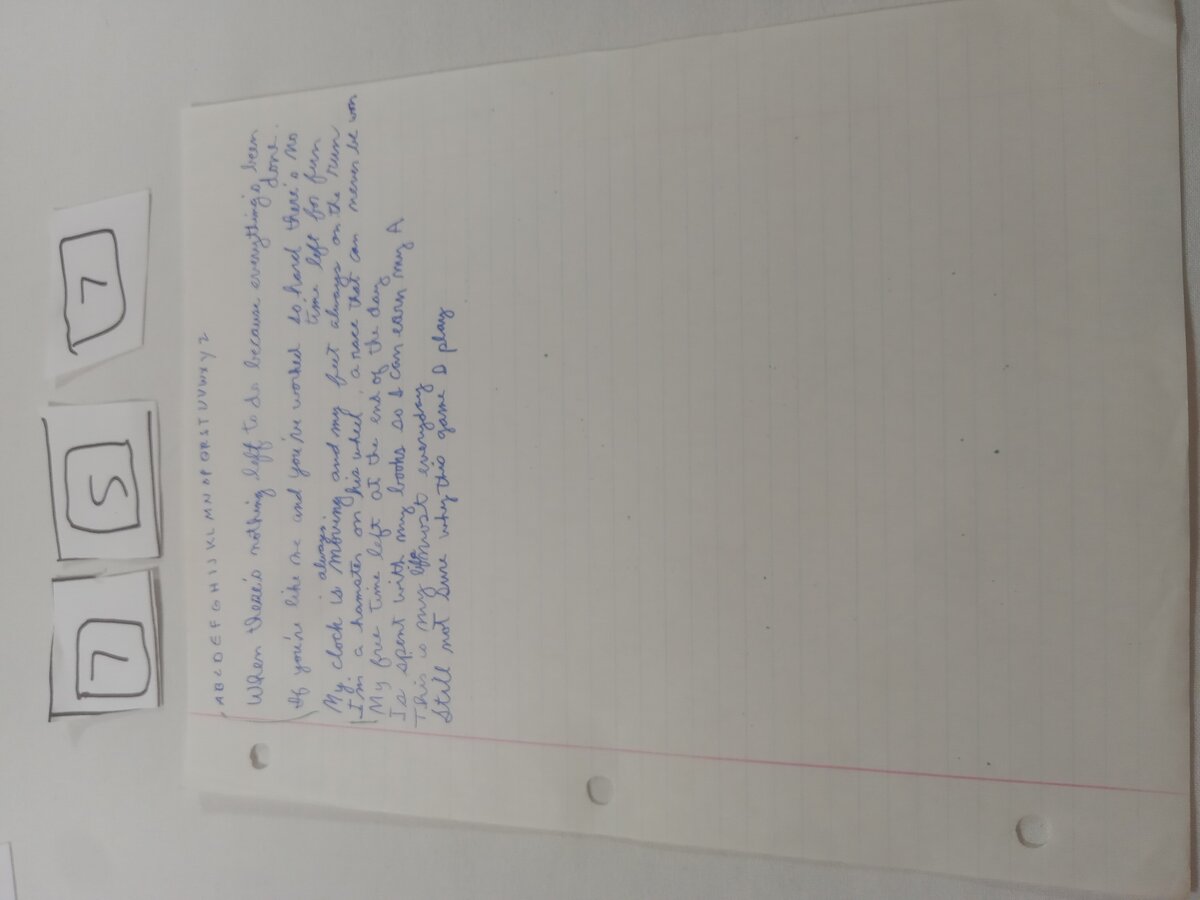 7 5 7
A B C D E F G H I J K L M N O P Q R S T U V W X Y Z
When there's nothing left to do because everything's been
done.
If you're like me and you've worked so hard there's no
time left for fun
always.
My clock is moving and my feet always on the run
I'm a hamster on his wheel, a race that can never be won
My free time left at the end of the day
Is spent with my books so I can earn my A
This is my life most everyday
Still not sure why this game I play